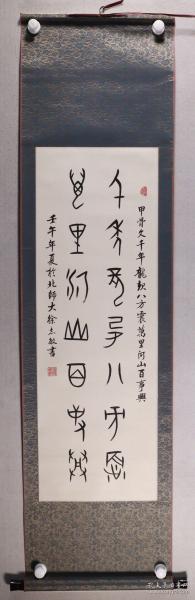 甲骨文千年龍八方震萬里河山百事興
千年龍八方震
萬里河山百事興
壬午年夏於北師大徐志敏書